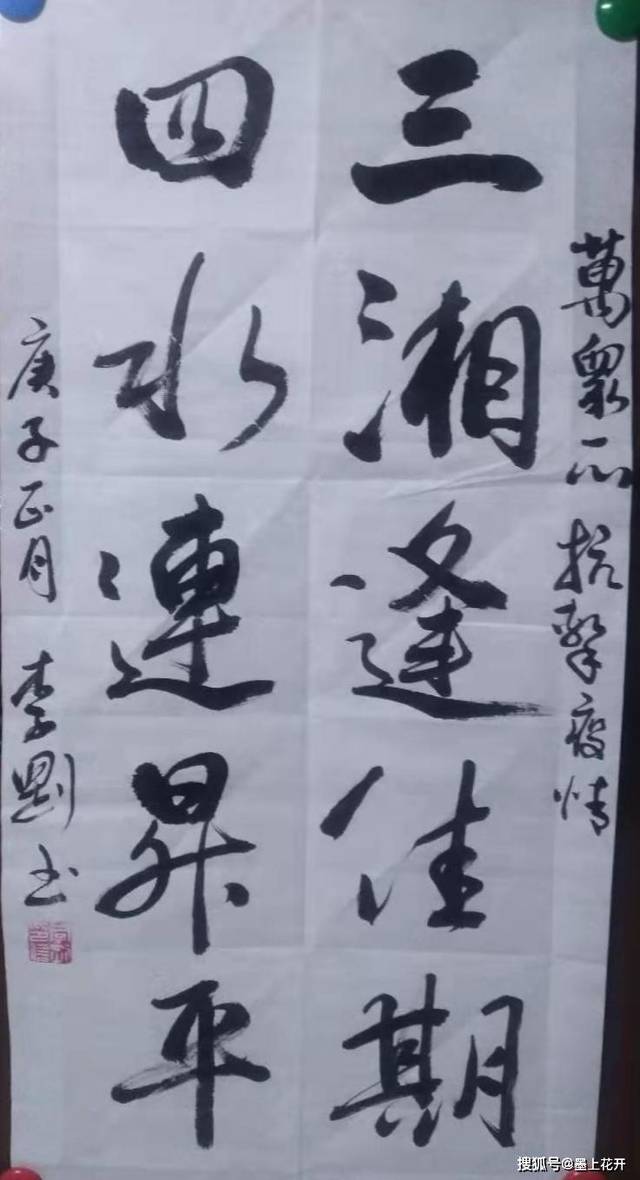 萬衆一心抗擊疫情
三湘逢佳期
四水連昇平
庚子正月李剛书
搜狐号@墨上花开